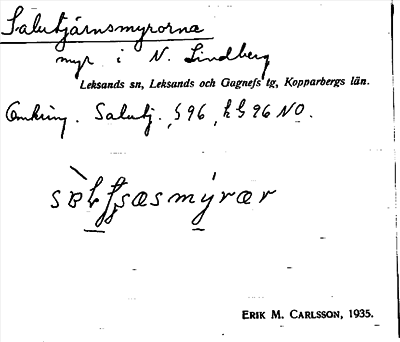 Salutjärnsmyrorna
myr i N. Lindberg
Leksands sn, Leksands och Gagnefs tg, Kopparbergs län.
Omkring. Salutj. § 96, NO.
ERIK M. CARLSSON, 1935.